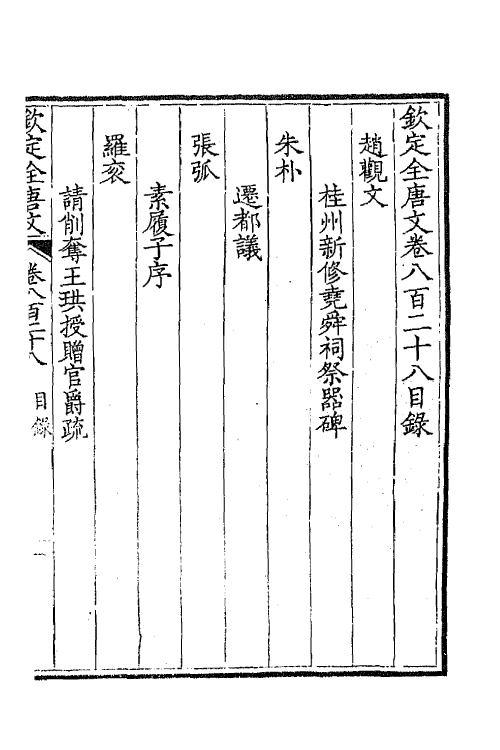 欽定全唐文卷八百二十八目錄
趙觀文
桂州新修堯舜祠祭器碑
朱朴
遷都議
張弧
素履子序
羅衮
請削奪王珙授贈官爵疏
欽定全唐文 卷八百二十八 目錄 一